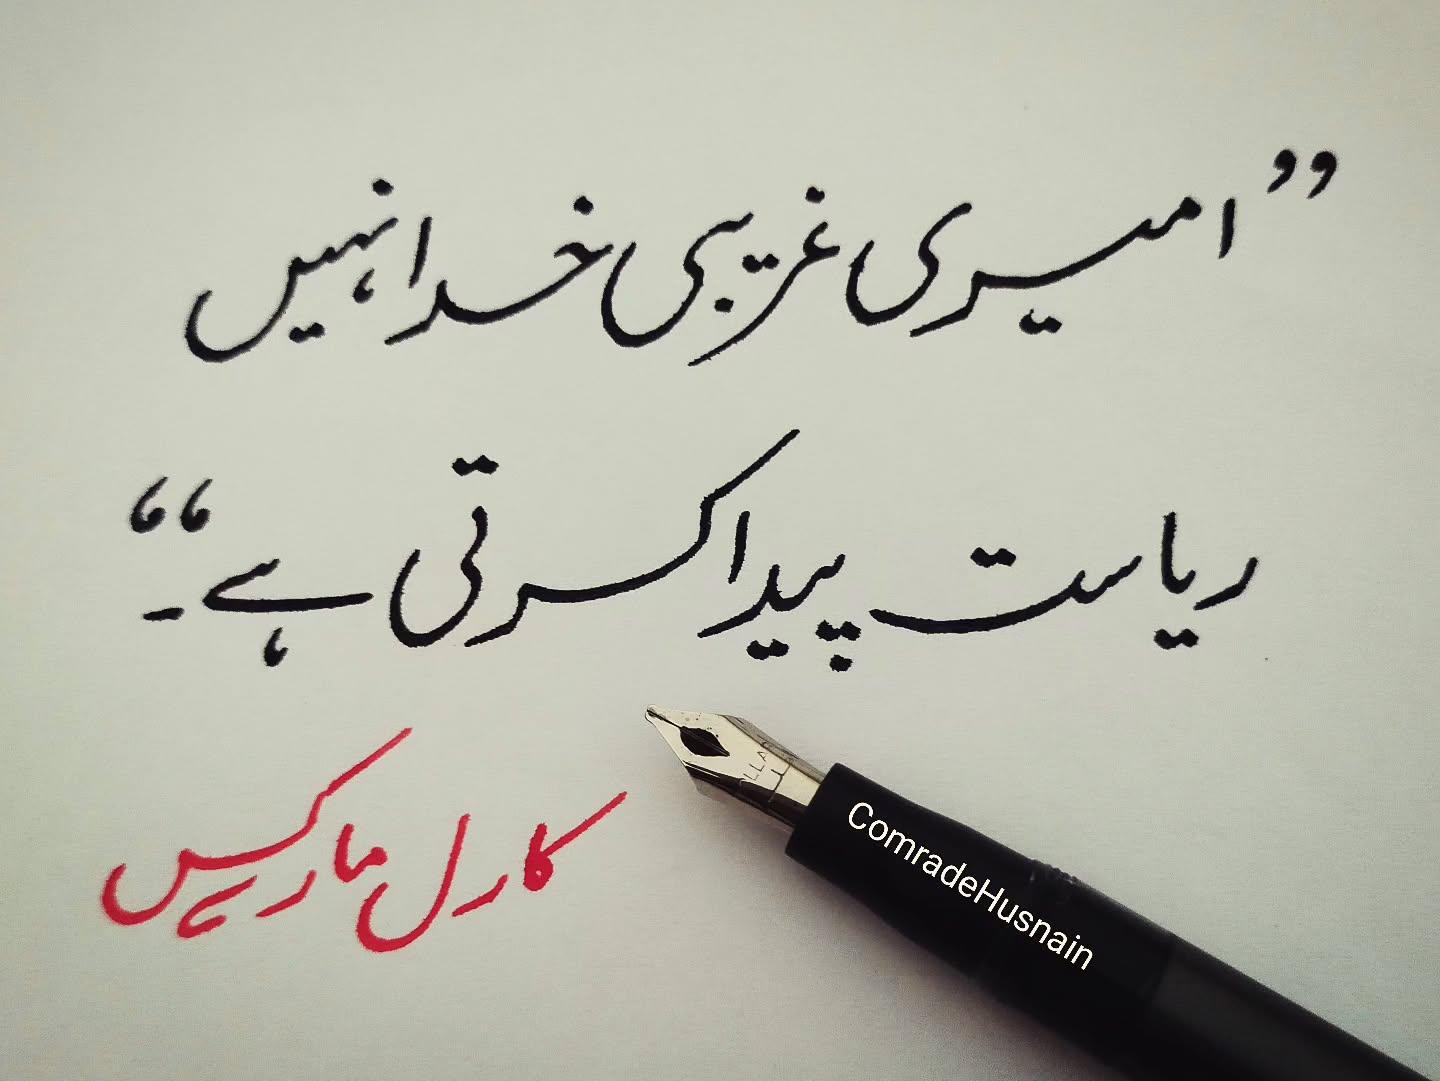 ”امیری غریبی خدا نہیں
ریاست پیدا کرتی ہے۔“
کارل مارکس
ComradeHusnain